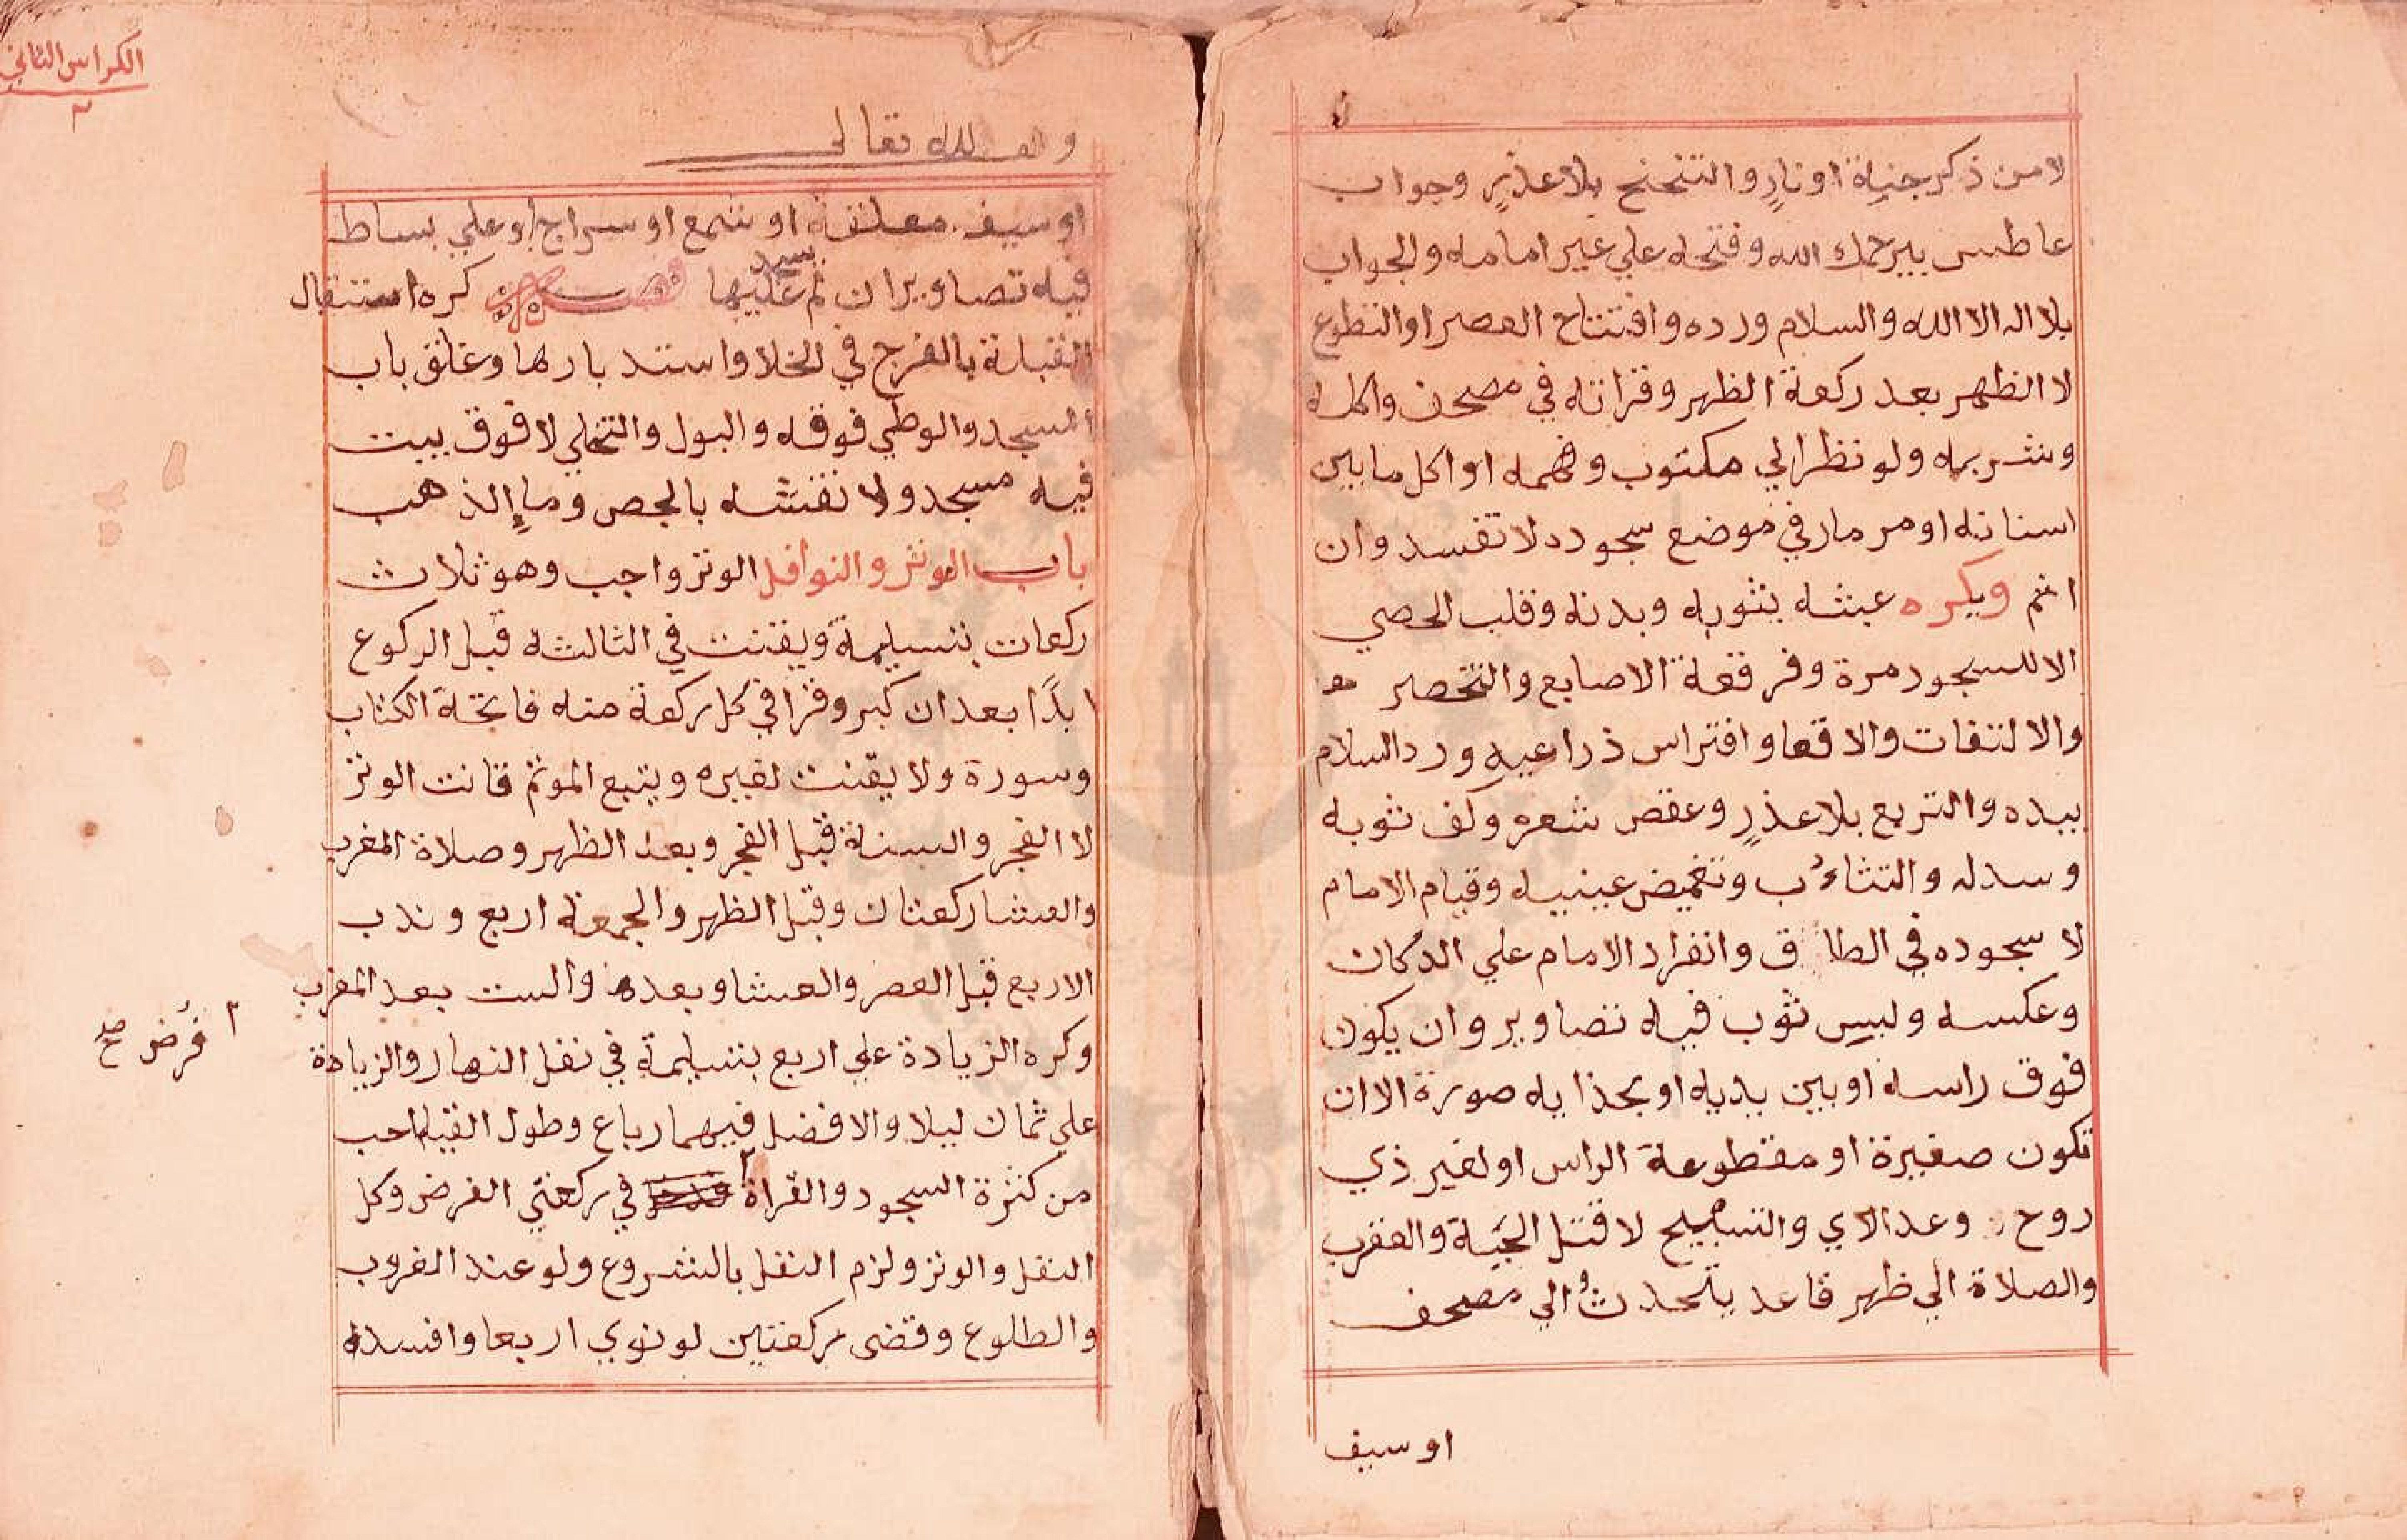 لا من ذكر جنة او نارٍ والتنحنح بلا عذرٍ وجواب
عاطس بيرحمك الله وفتحه علي غير امامه والجواب
بلا اله الا الله والسلام ورده وافتتاح العصر او التطوع
لا الظهر بعد ركعة الظهر وقراته في مصحف واكله
وشربه ولو نظر الي مكتوب وفهمه او اكل ما بين
اسنانه او مر مار في موضع سجوده لا تفسد وان
اثم ويكره عبثه بثوبه وبدنه وقلب الحصي
الا للسجود مرة وفرقعة الاصابع والتخصر
والالتفات والاقعا وافتراس ذراعيه ورد السلام
بيده والتربع بلا عذرٍ وعقص شعره وكف ثوبه
وسدله والتثاءب وتغميض عينيه وقيام الامام
لا سجوده في الطاق وانفراد الامام علي الدكان
وعكسه ولبس ثوب فيه تصاوير وان يكون
فوق راسه او بين يديه او بحذايه صورة الا ان
تكون صغيرة او مقطوعة الراس او لغير ذي
روح وعد الاي والتسبيح لا قتل الحية والعقرب
والصلاة الي ظهر قاعد يتحدث والي مصحف
او سيف
الكراس الثاني
٢
لله تعالى
او سيف معلقة او شمع او سراج او علي بساط
فيه تصاوير ان لم يسجد عليها فصل كره استقبال
القبلة بالفرج في الخلا واستدبارها وغلق باب
المسجد والوطي فوقه والبول والتخلي لا فوق بيت
فيه مسجد ولا نقشه بالجص وماء الذهب
باب الوتر والنوافل الوتر واجب وهو ثلاث
ركعات بتسليمة ويقنت في الثالثة قبل الركوع
ابدًا بعد ان كبر وقرا في كل ركعة منه فاتحة الكتاب
وسورة ولا يقنت لغيره ويتبع الموتم قانت الوتر
لا الفجر والسنة قبل الفجر وبعد الظهر وصلاة المغرب
والعشا ركعتان وقبل الظهر والجمعة اربع وندب
الاربع قبل العصر والعشا وبعده والست بعد المغرب
وكره الزيادة علي اربع بتسليمة في نفل النهار والزيادة
علي ثمان ليلا والافضل فيهما رباع وطول القيام احب
من كثرة السجود والقراة ٢ في ركعتي الفرض وكل
النفل والوتر ولزم النفل بالشروع ولو عند الغروب
والطلوع وقضى ركعتين لو نوي اربعا وافسده
٢ فرض صح